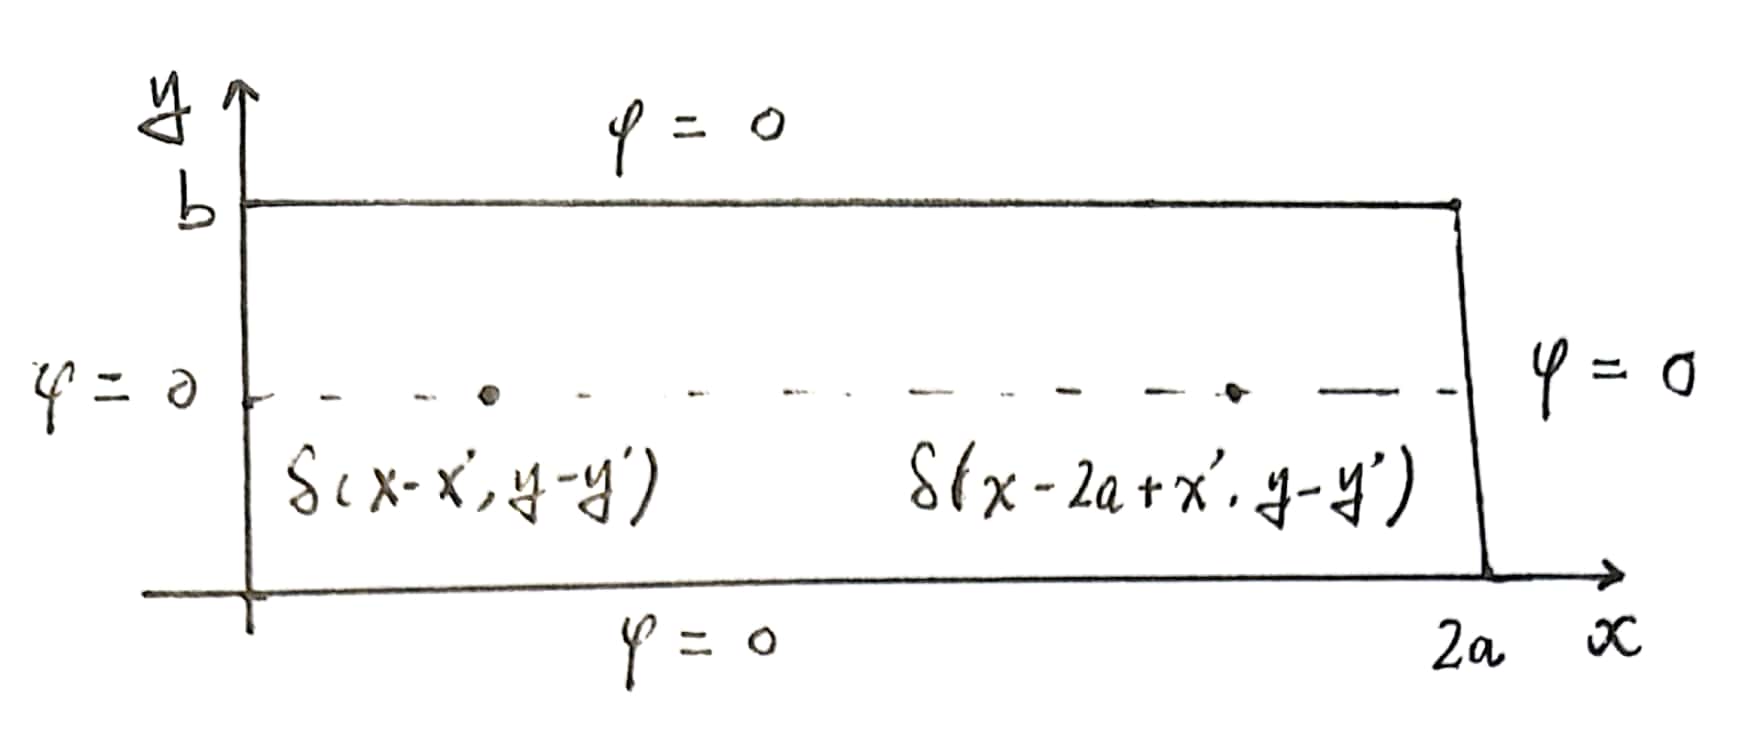 y
φ = 0
b
φ = 0
φ = 0
δ(x-x', y-y')
δ(x-2a+x', y-y')
φ = 0
2a
x